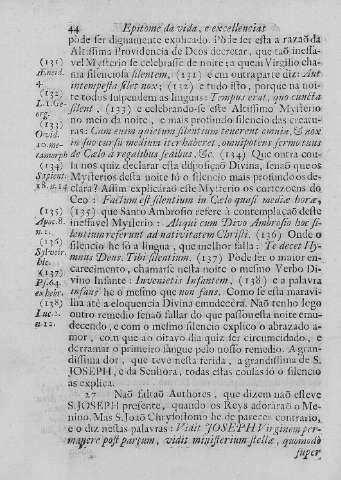 44 Epitome da vida, e excellencias
pòde ser dignamente explicado. Póde ser esta a razaõ da
Altissima Providencia de Deos decretar, que taõ ineffa-
vel Mysterio se celebrasse de noite; a quem Virgilio cha-
ma silenciosa silentem, (131) e em outra parte diz: Aut
intempesta silet nox; (132) e tudo isto, porque na noi-
te todos suspendem as linguas: Tempus erat, quo cuncta
silent. (133) e celebrando-se este Altissimo Mysterio
no meio da noite, e mais profundo silencio das creatu-
ras: Cum enim quietum silentium tenerent omnia, & nox
in suo cursu medium iter haberet, omnipotens sermo tuus
de Cœlo à regalibus sedibus, &c. (134) Que outra cou-
sa nos quiz declarar esta disposiçaõ Divina, senaõ que os
Mysterios desta noite só o silencio mais profundo os de-
clara? Assim explicáraõ este Mysterio os cortezoens do
Ceo: Factum est silentium in Cœlo quasi mediæ horæ,
(135) que Santo Ambrosio refere á contemplaçaõ deste
ineffavel Mysterio: Aliqui cum Divo Ambrosio hoc si-
lentium referunt ad nativitatem Christi. (136) Onde o
silencio he só a lingua, que melhor falla: Te decet Hy-
mnus Deus. Tibi silentium. (137) Póde ser o maior en-
carecimento, chamarse nesta noite o mesmo Verbo Di-
vino Infante: Invenietis Infantem, (138) e a palavra
infans he o mesmo que non fans. Como se esta maravi-
lha até a eloquencia Divina emudecèra. Naõ tenho logo
outro remedio senaõ fallar do que passou nesta noite emu-
decendo, e com o mesmo silencio explico o abrazado a-
mor, com que ao oitavo dia quiz ser circumcidado, e
derramar o primeiro sangue pelo nosso remedio. A gran-
dissima dor, que teve nesta ferida, a grandissima de S.
JOSEPH, e da Senhora, todas estas cousas só o silencio
as explica.
27 Naõ faltaõ Authores, que dizem naõ esteve
S. JOSEPH presente, quando os Reys adoráraõ o Me-
nino. Mas S. Joaõ Chrysostomo he de parecer contrario,
e o diz nestas palavras: Vidit JOSEPH Virginem per-
manere post partum, vidit ministerium stellæ, quomodo
super
(131)
Æneid.
4.
(132)
L. 1. Ge-
org.
(133)
Ovid.
10. me-
tamorph
(134)
Sapient.
18. n. 14
(135)
Apoc. 8.
n. 1.
(136)
Sylveir.
hic.
(137)
Ps. 64.
ex hebr.
(138)
Luc. 2.
n. 12.